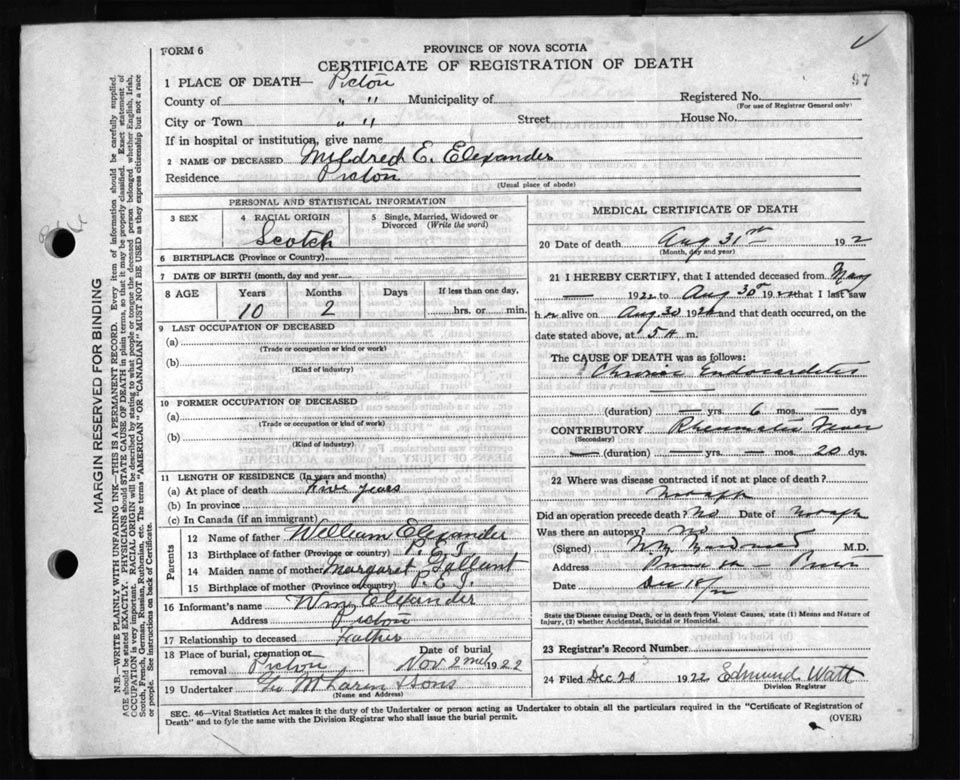 FORM 6
PROVINCE OF NOVA SCOTIA
CERTIFICATE OF REGISTRATION OF DEATH
97
1 PLACE OF DEATH— Picton
County of " " Municipality of Registered No.
(For use of Registrar General only)
City or Town " " Street House No.
If in hospital or institution, give name
2 NAME OF DECEASED Mildred E. Elexander
Residence Picton
(Usual place of abode)
PERSONAL AND STATISTICAL INFORMATION
3 SEX 4 RACIAL ORIGIN 5 Single, Married, Widowed or Divorced (Write the word)
Scotch
6 BIRTHPLACE (Province or Country)
7 DATE OF BIRTH (month, day and year)
8 AGE Years Months Days If less than one day,
10 2 hrs. or min.
9 LAST OCCUPATION OF DECEASED
(a)
(Trade or occupation or kind or work)
(b)
(Kind of industry)
10 FORMER OCCUPATION OF DECEASED
(a)
(Trade or occupation or kind of work)
(b)
(Kind of industry)
11 LENGTH OF RESIDENCE (In years and months)
(a) At place of death Five years
(b) In province
(c) In Canada (if an immigrant)
Parents
12 Name of father William Elexander
13 Birthplace of father (Province or country) P. E. I.
14 Maiden name of mother Margaret Gallant
15 Birthplace of mother (Province or country) P. E. I.
16 Informant's name Wm Elexander
Address Picton
17 Relationship to deceased Father
18 Place of burial, cremation or removal Picton Date of burial Nov 2nd 1922
19 Undertaker Geo McLaren & Sons
(Name and Address)
MEDICAL CERTIFICATE OF DEATH
20 Date of death Aug 31st 192
(Month, day and year)
21 I HEREBY CERTIFY, that I attended deceased from May
— 1922 to Aug 30th 192 that I last saw
h alive on Aug 30 192 and that death occurred, on the
date stated above, at 5 m.
The CAUSE OF DEATH was as follows:
Chronic Endocardites
(duration) — yrs. 6 mos. — dys
CONTRIBUTORY Rheumatic Fever
(Secondary)
— (duration) — yrs. — mos. 20 dys.
22 Where was disease contracted if not at place of death?
Did an operation precede death? No Date of
Was there an autopsy? No
(Signed) M.D.
Address
Date Dec 18/22
State the Disease causing Death, or in death from Violent Causes, state (1) Means and Nature of Injury, (2) whether Accidental, Suicidal or Homicidal.
23 Registrar's Record Number
24 Filed Dec 20 1922 Edmund Watt
Division Registrar
SEC. 46—Vital Statistics Act makes it the duty of the Undertaker or person acting as Undertaker to obtain all the particulars required in the "Certificate of Registration of
Death" and to fyle the same with the Division Registrar who shall issue the burial permit.
(OVER)
MARGIN RESERVED FOR BINDING
N.B.—WRITE PLAINLY WITH UNFADING INK—THIS IS A PERMANENT RECORD. Every item of information should be carefully supplied.
AGE should be stated EXACTLY. PHYSICIANS should STATE CAUSE OF DEATH in plain terms, so that it may be properly classified. Exact statement of
OCCUPATION is very important. RACIAL ORIGIN will be described by stating to what people or tongue the deceased person belonged whether English, Irish,
Scotch, French, German, Russian, Ruthenian, etc. The terms "AMERICAN" OR "CANADIAN" MUST NOT BE USED as they express citizenship but not a race
or people. See instructions on back of Certificate.